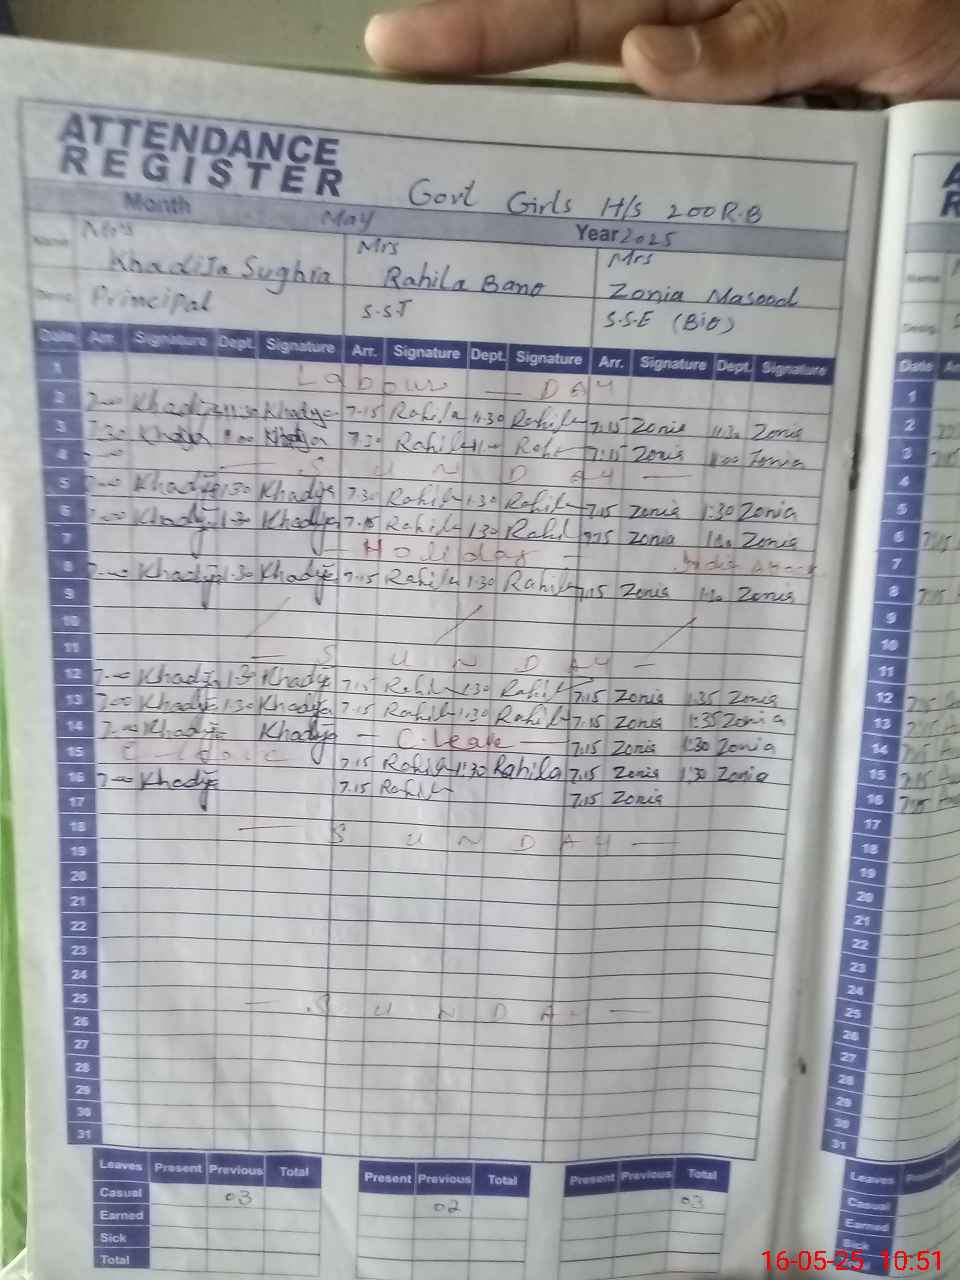 ATTENDANCE
REGISTER
Govt Girls H/S 200 R.B
Month May Year 2025
Name Mrs Khadija Sughra Mrs Rahila Bano Mrs Zonia Masood
Principal S.S.T S.S.E (Bio)
Date Arr. Signature Dept. Signature Arr. Signature Dept. Signature Arr. Signature Dept. Signature
1 Labour — DAY
2 7-00 Khadija 11:30 Khadija 7-15 Rahila 11:30 Rahila 7:15 Zonia 11:30 Zonia
3 7:30 Khadija Khadija 7:30 Rahila Rahila 7:15 Zonia Zonia
4 — S U N D AY —
5 7-00 Khadija 1:30 Khadija 7:30 Rahila 1:30 Rahila 7:15 Zonia 1:30 Zonia
6 7-00 Khadija 1:30 Khadija 7.15 Rahila 1:30 Rahila 7:15 Zonia Zonia
7 — Holiday —
8 7-00 Khadija 1:30 Khadija 7:15 Rahila 1:30 Rahila 7:15 Zonia Zonia
9
10
11 — S U N D AY —
12 7-00 Khadija 1:30 Khadija 7:15 Rahila 1:30 Rahila 7:15 Zonia 1:35 Zonia
13 7:00 Khadija 1:30 Khadija 7:15 Rahila 1:30 Rahila 7:15 Zonia 1:35 Zonia
14 7-00 Khadija Khadija — C-Leave — 7:15 Zonia 1:30 Zonia
15 7:15 Rahila 1:30 Rahila 7:15 Zonia 1:30 Zonia
16 7-00 Khadija 7.15 Rahila 7.15 Zonia
17
18 — S U N D A Y —
19
20
21
22
23
24
25 — S U N D A Y —
26
27
28
29
30
31
Leaves Present Previous Total Present Previous Total Present Previous Total
Casual 03 02 03
Earned
Sick
Total
A
R
Date
1
2
3
4
5
6
7
8
9
10
11
12
13
14
15
16
17
18
19
20
21
22
23
24
25
26
27
28
29
30
31
Leaves
Casual
Earned
Sick
16-05-25 10:51